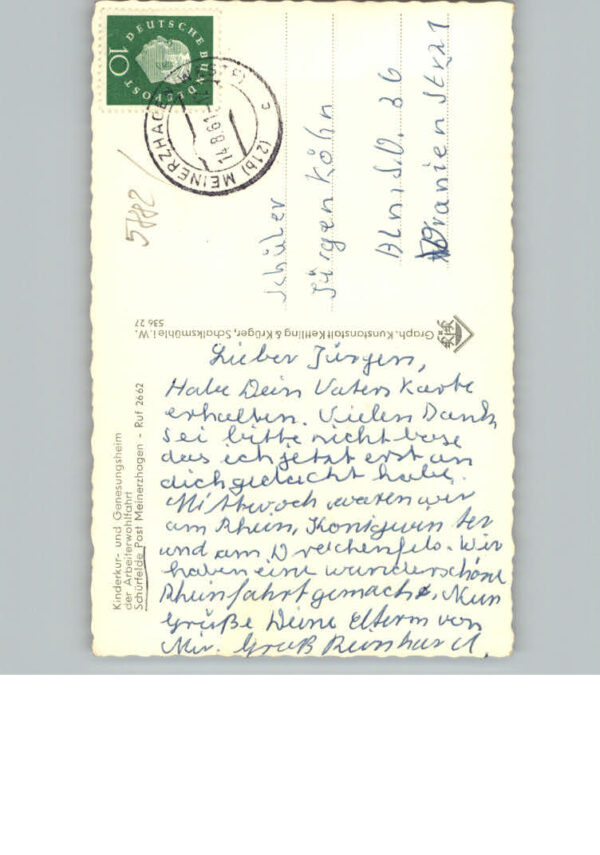 DEUTSCHE BUNDESPOST
10
(21b) MEINERZHAGEN
14.8.61
c
5882
Schüler
Jürgen Köhn
Bln. S.O. 36
Oranienstraße
Graph. Kunstanstalt Kettling & Krüger, Schalksmühle i. W.
536 27
Kinderkur- und Genesungsheim
der Arbeiterwohlfahrt
Schürfelde Post Meinerzhagen - Ruf 2662
Lieber Jürgen,
Habe Dein Vaters Karte
erhalten. Vielen Dank,
Sei bitte nicht böse
das ich jetzt erst an
dich gedacht habe.
Mittwoch waren wir
am Rhein, Königswinter
und am Drachenfels. Wir
haben eine wunderschöne
Rheinfahrt gemacht. Nun
Grüße Deine Eltern von
Mir. Gruß Reinhard.